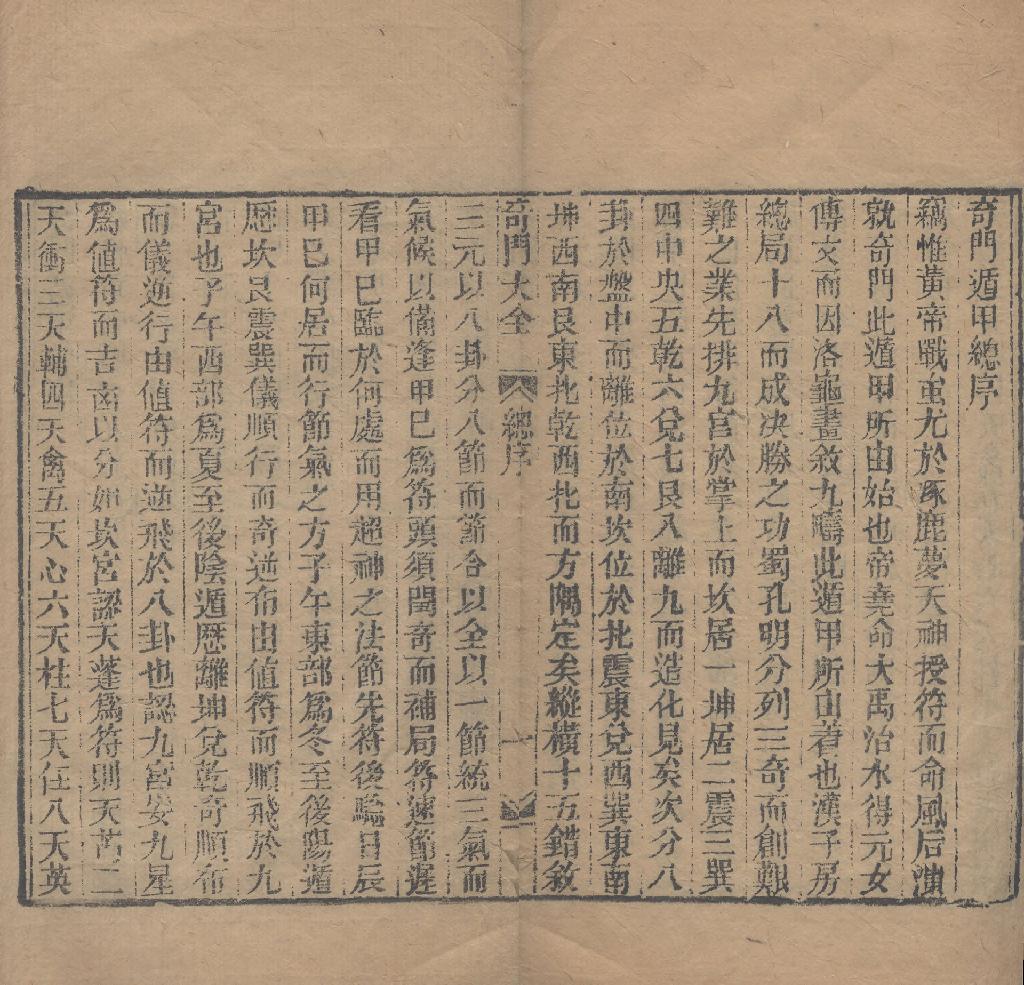 奇門遁甲總序
竊惟黃帝戰蚩尤於涿鹿夢天神授符而命風后演
就奇門此遁甲所由始也帝堯命大禹治水得元女
傳文而因洛龜畫敘九疇此遁甲所由著也漢子房
總局十八而成決勝之功蜀孔明分列三奇而創艱
難之業先排九宮於掌上而坎居一坤居二震三巽
四中央五乾六兌七艮八離九而造化見矣次分八
卦於盤中而離位於南坎位於北震東兌西巽東南
坤西南艮東北乾西北而方隅定矣縱橫十五錯敘
奇門大全 總序 一
三元以八卦分八節而節合以全以一節統三氣而
氣候以備逢甲巳為符頭須閏奇而補局符速節遲
看甲巳臨於何處而用超神之法節先符後驗日辰
甲巳何居而行節氣之方子午東部為冬至後陽遁
歷坎艮震巽儀順行而奇逆布由值符而順飛於九
宮也子午酉部為夏至後陰遁歷離坤兌乾奇順布
而儀逆行由值符而逆飛於八卦也認九宮安九星
為值符而吉凶以分如坎宮認天蓬為符則天芮二
天衝三天輔四天禽五天心六天柱七天任八天英